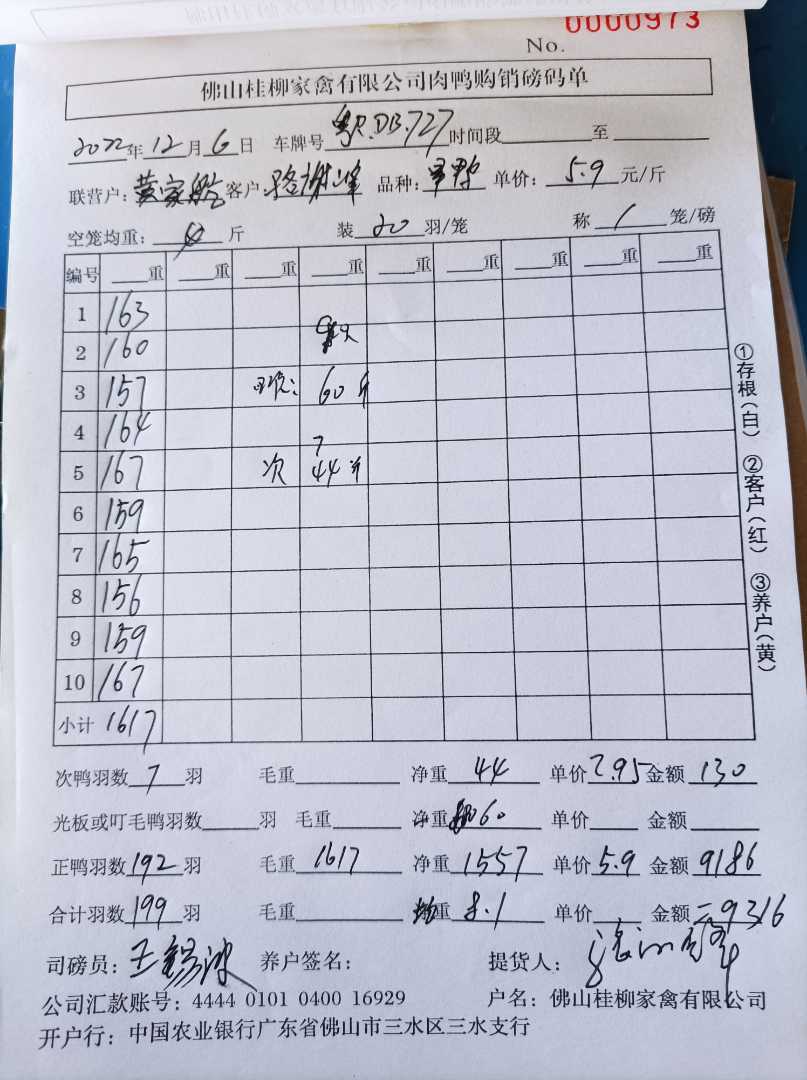 No. 0000973
佛山桂柳家禽有限公司肉鸭购销磅码单
2022年12月6日 车牌号粤R.DB.727时间段 至
联营户:黄家 客户: 谢峰 品种: 单价:5.9元/斤
空笼均重: 斤 装20羽/笼 称1笼/磅
编号 重 重 重 重 重 重 重 重 重
1 163
2 160
3 157 60斤
4 164
5 167 次 7 44斤
6 159
7 165
8 156
9 159
10 167
小计 1617
①存根(白) ②客户(红) ③养户(黄)
次鸭羽数7羽 毛重 净重44 单价2.95金额130
光板或叮毛鸭羽数 羽 毛重 净重60 单价 金额
正鸭羽数192羽 毛重1617 净重1557 单价5.9金额9186
合计羽数199羽 毛重 均重8.1 单价 金额9316
司磅员:王锡 养户签名: 提货人:
公司汇款账号:4444 0101 0400 16929 户名:佛山桂柳家禽有限公司
开户行:中国农业银行广东省佛山市三水区三水支行